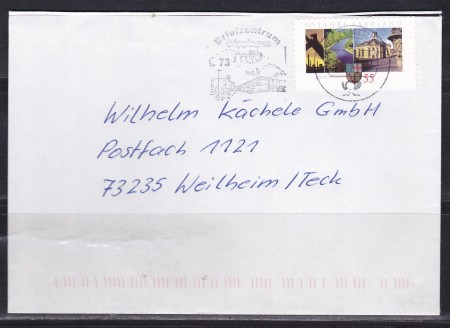 50 JAHRE SAARLAND
Briefzentrum
73
55
Wilhelm Kächele GmbH
Postfach 1121
73235 Weilheim/Teck